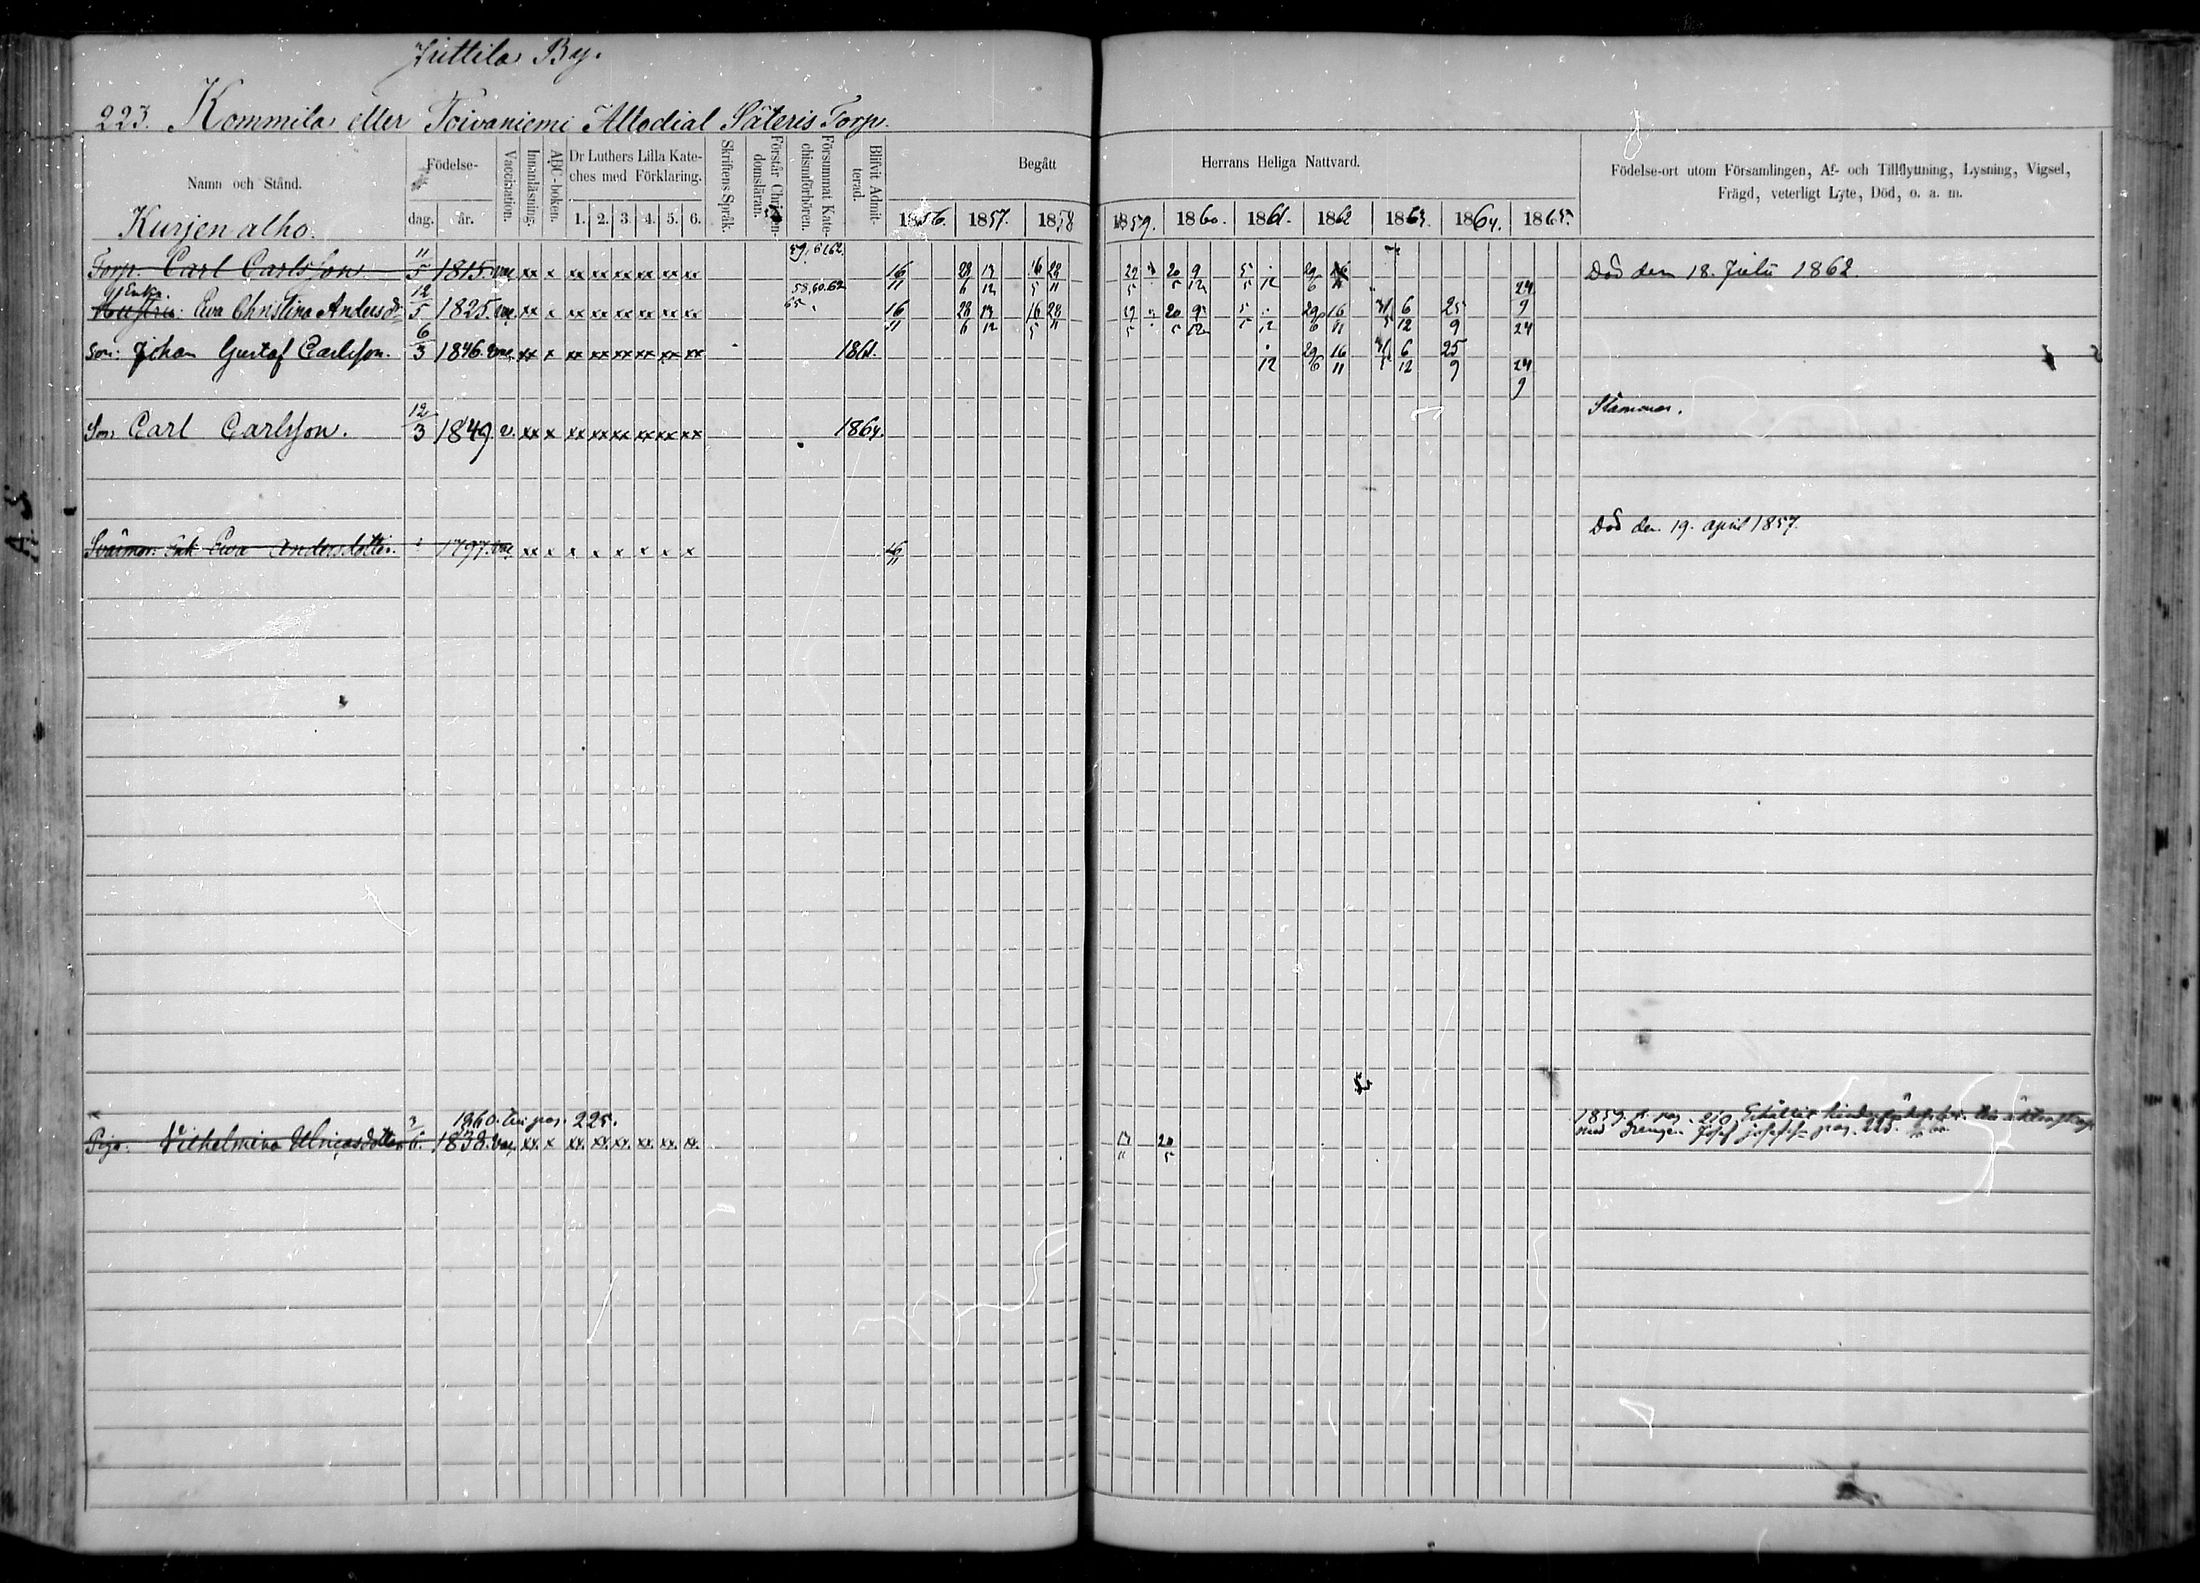 Juttila By.
223. Kommila eller Toivaniemi Allodial Säteris Torp.
Namn och Stånd.
Födelse-
dag. år.
Vaccination.
Innanläsning.
ABC-boken.
Dr Luthers Lilla Kate-
ches med Förklaring.
1. 2. 3. 4. 5. 6.
Skriftens Språk.
Förstår Christen-
domsläran.
Försummat Kate-
chismiförhören.
Blifvit Admit-
terad.
Begått
Herrans Heliga Nattvard.
1856. 1857. 1858 1859. 1860. 1861. 1862 1863. 1864. 1865.
Födelse-ort utom Församlingen, Af- och Tillflyttning, Lysning, Vigsel,
Frägd, veterligt Lyte, Död, o. a. m.
Kurjen alho.
Torp. Carl Carlsson 11/5 1815. xx x xx xx xx xx xx xx 59, 61 62. 16/11 28/6 16/5 28/11 20/5 9/12 29/6 Död den 18. Julii 1862
Enka
Hustru: Eva Christina Andersdr 12/5 1825. xx x xx xx xx xx xx xx 58, 60. 62 65 16/11 28/6 16/5 28/11 20/5 9/12 29/6 16/11 31/5 6/12 25/9 24/9
Son: Johan Gustaf Carlsson. 6/3 1846. xx x xx xx xx xx xx xx 1861. 29/6 16/11 31/5 6/12 25/9 24/9
Son Carl Carlsson. 12/3 1849 v. xx x xx xx xx xx xx xx 1864. Stammar.
Svärmor. Enk Eva Andersdotter. 1797. xx x x x x x x x 16/11 Död den 19. April 1857.
1860. till pag. 225.
Piga. Vilhelmina Ulricasdotter 3/6. 1838. xx x xx xx xx xx xx xx 20/5 1859. fr. pag. 210
med Drängen Josef Josefs pag. 225.